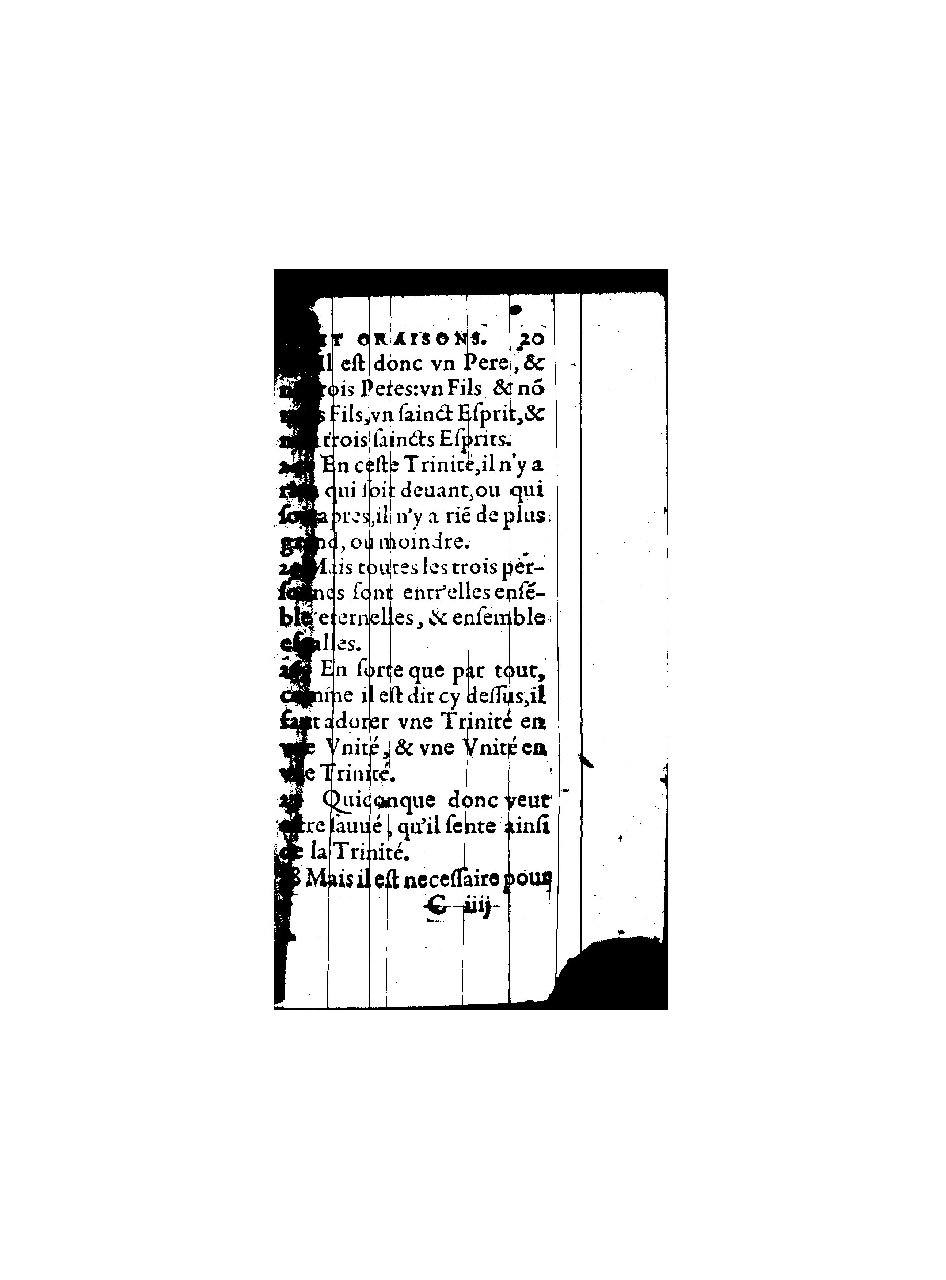 ET ORAISONS. 20
Il est donc vn Pere, &
non trois Peres: vn Fils & nõ
trois Fils, vn ſainct Eſprit, &
non trois ſaincts Eſprits.
24 En ceſte Trinité, il n'y a
rien qui ſoit deuant, ou qui
ſoit apres, il n'y a riẽ de plus
grand, ou moindre.
25 Mais toutes les trois per-
ſonnes ſont entr'elles enſé-
ble eternelles, & enſemble
eſgalles.
26 En ſorte que par tout,
comme il eſt dit cy deſſus, il
faut adorer vne Trinité en
vne Vnité, & vne Vnité en
vne Trinité.
27 Quiconque donc veut
eſtre ſauué, qu'il ſente ainſi
de la Trinité.
28 Mais il eſt neceſſaire pour
C iiij